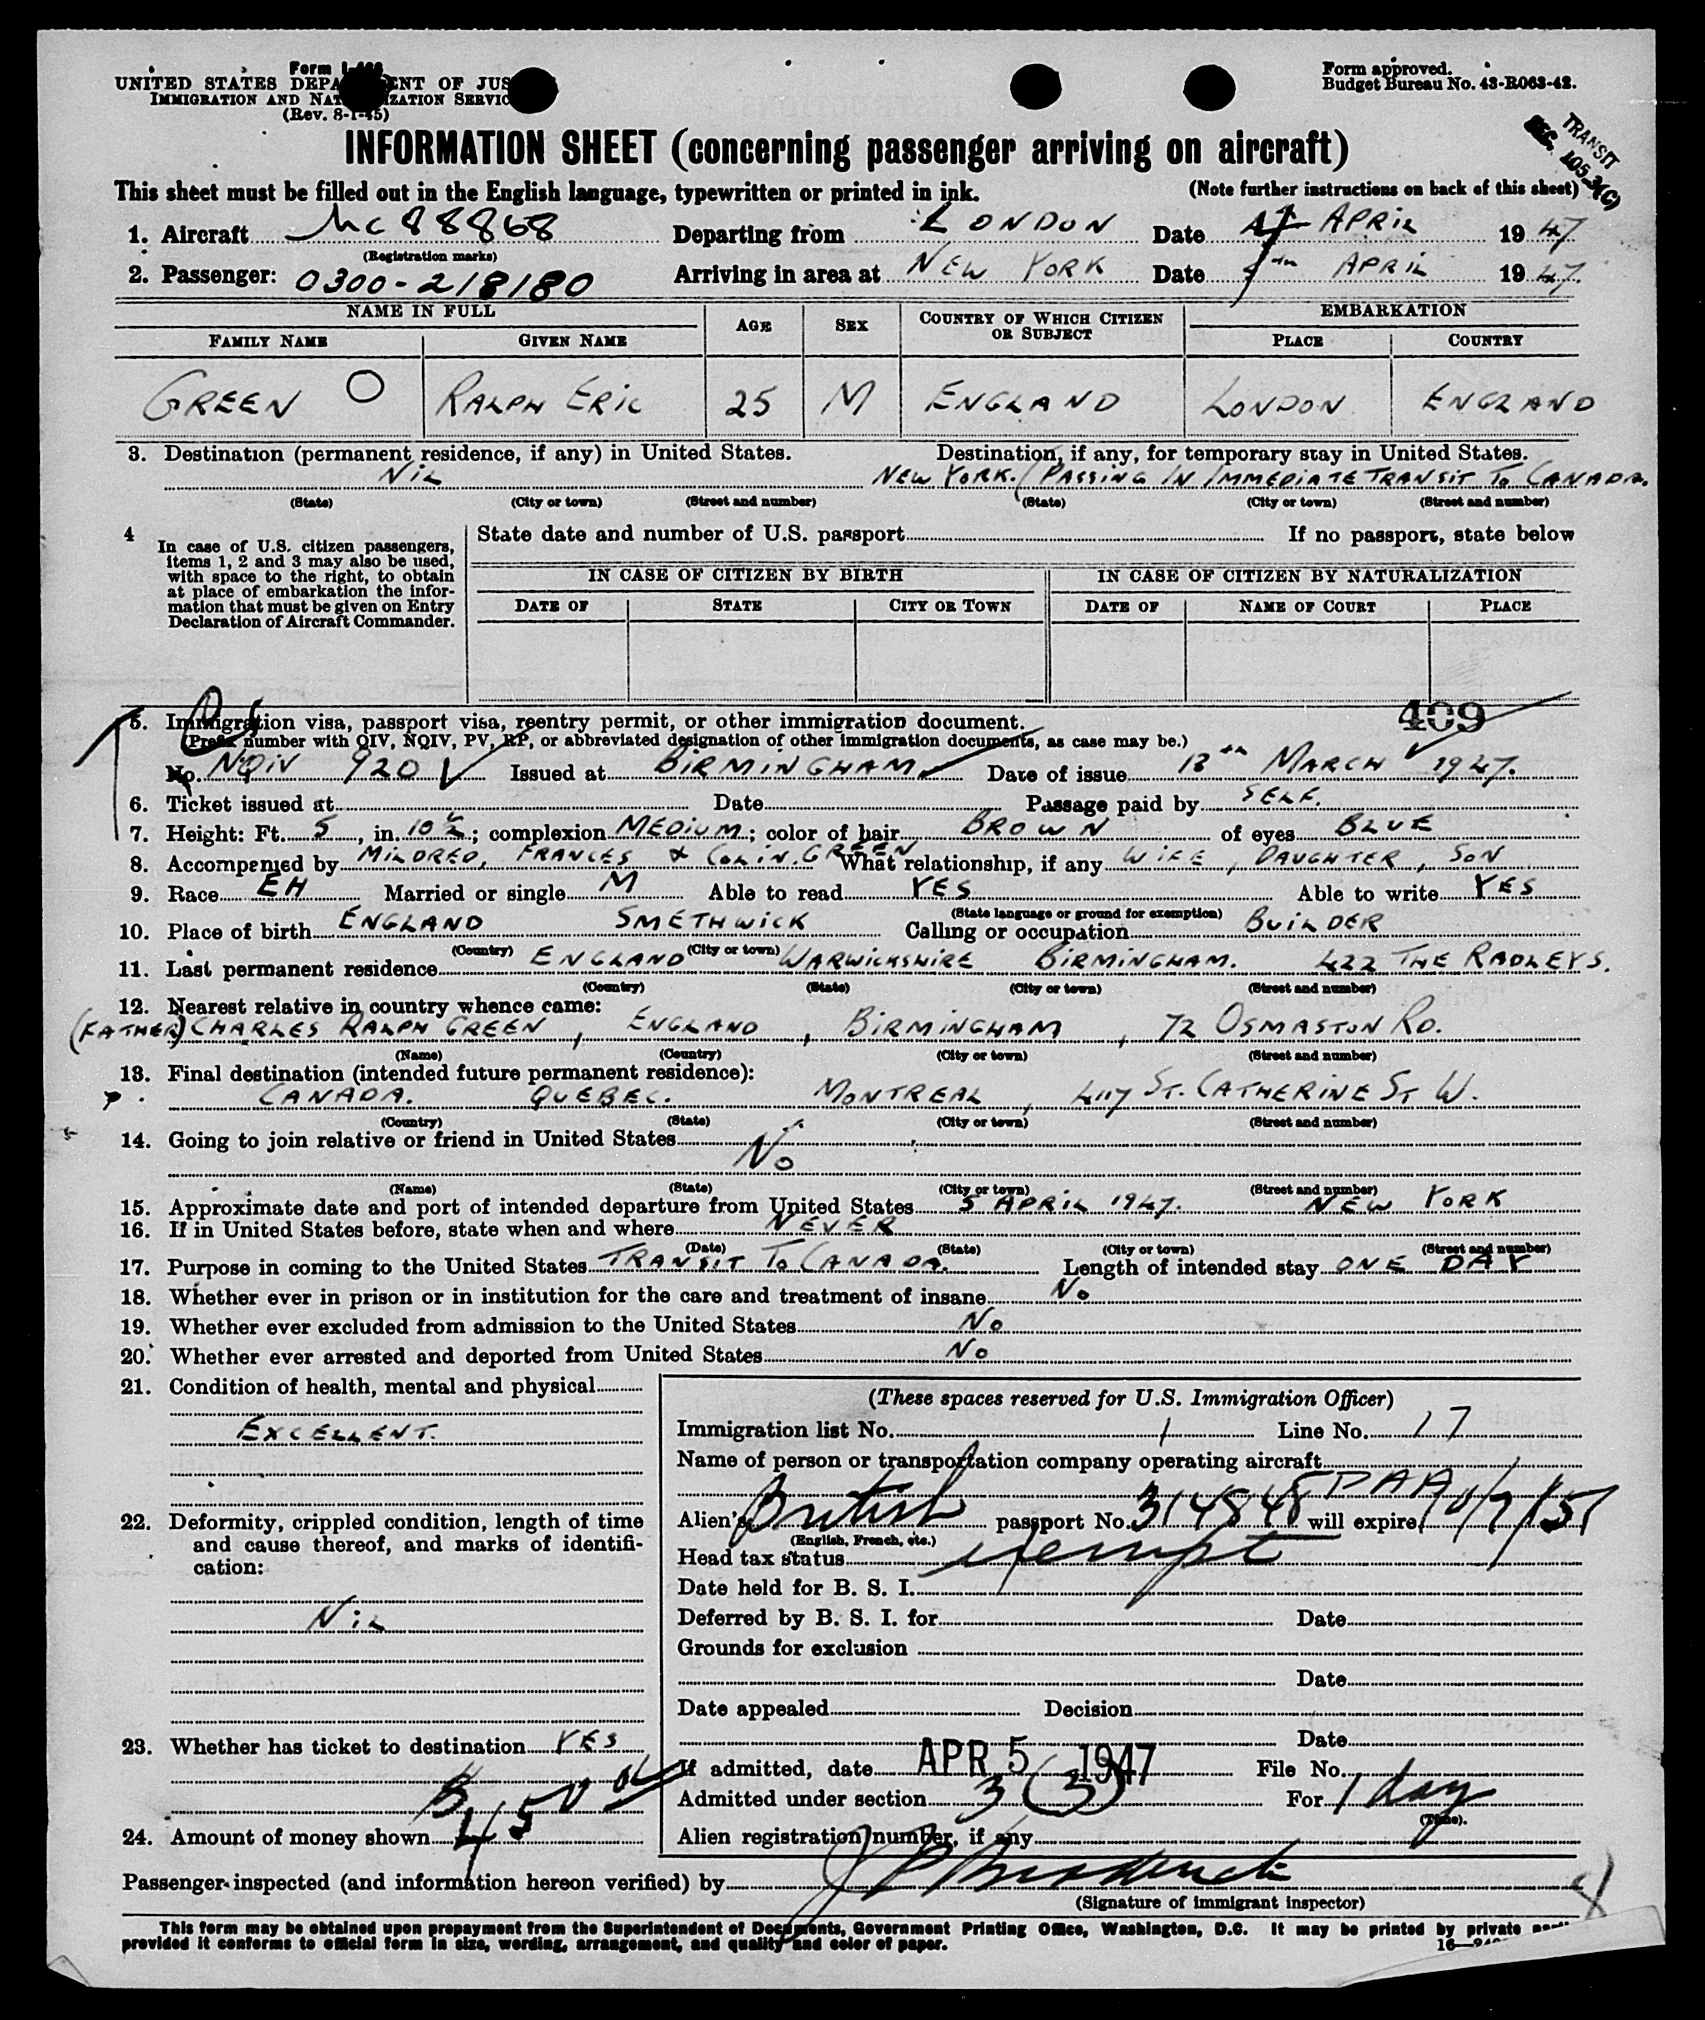 Form I-466
UNITED STATES DEPARTMENT OF JUSTICE
IMMIGRATION AND NATURALIZATION SERVICE
(Rev. 8-1-45)
Form approved.
Budget Bureau No. 43-R063-42.
TRANSIT
SEC. 105.3(C)
INFORMATION SHEET (concerning passenger arriving on aircraft)
This sheet must be filled out in the English language, typewritten or printed in ink. (Note further instructions on back of this sheet)
1. Aircraft NC 88868 Departing from LONDON Date APRIL 1947
(Registration marks)
2. Passenger: 0300-218180 Arriving in area at NEW YORK Date 5th APRIL 1947.
NAME IN FULL AGE SEX COUNTRY OF WHICH CITIZEN OR SUBJECT EMBARKATION
FAMILY NAME GIVEN NAME PLACE COUNTRY
GREEN O RALPH ERIC 25 M ENGLAND LONDON ENGLAND
3. Destination (permanent residence, if any) in United States. Destination, if any, for temporary stay in United States.
NIL NEW YORK. (PASSING IN IMMEDIATE TRANSIT TO CANADA.
(State) (City or town) (Street and number) (State) (City or town) (Street and number)
4 In case of U.S. citizen passengers, items 1, 2 and 3 may also be used, with space to the right, to obtain at place of embarkation the information that must be given on Entry Declaration of Aircraft Commander.
State date and number of U.S. passport If no passport, state below
IN CASE OF CITIZEN BY BIRTH IN CASE OF CITIZEN BY NATURALIZATION
DATE OF STATE CITY OR TOWN DATE OF NAME OF COURT PLACE
409
5. Immigration visa, passport visa, reentry permit, or other immigration document.
(Prefix number with QIV, NQIV, PV, RP, or abbreviated designation of other immigration documents, as case may be.)
No. NQIV 920 Issued at BIRMINGHAM Date of issue 13th MARCH 1947.
6. Ticket issued at Date Passage paid by SELF.
7. Height: Ft. 5, in. 10½; complexion MEDIUM; color of hair BROWN of eyes BLUE
8. Accompanied by MILDRED, FRANCES & COLIN. GREEN What relationship, if any WIFE, DAUGHTER, SON
9. Race EH Married or single M Able to read YES Able to write YES
(State language or ground for exemption)
10. Place of birth ENGLAND SMETHWICK Calling or occupation BUILDER
(Country) (City or town)
11. Last permanent residence ENGLAND WARWICKSHIRE BIRMINGHAM. 422 THE RADLEYS.
(Country) (State) (City or town) (Street and number)
12. Nearest relative in country whence came:
(FATHER) CHARLES RALPH GREEN, ENGLAND, BIRMINGHAM, 72 OSMASTON RD.
(Name) (Country) (City or town) (Street and number)
13. Final destination (intended future permanent residence):
CANADA. QUEBEC. MONTREAL, 4117 ST. CATHERINE ST W.
(Country) (State) (City or town) (Street and number)
14. Going to join relative or friend in United States
No
(Name) (State) (City or town) (Street and number)
15. Approximate date and port of intended departure from United States 5 APRIL 1947. NEW YORK
16. If in United States before, state when and where NEVER
(Date) (State) (City or town) (Street and number)
17. Purpose in coming to the United States TRANSIT TO CANADA. Length of intended stay ONE DAY
18. Whether ever in prison or in institution for the care and treatment of insane No
19. Whether ever excluded from admission to the United States No
20. Whether ever arrested and deported from United States No
21. Condition of health, mental and physical
EXCELLENT.
22. Deformity, crippled condition, length of time
and cause thereof, and marks of identifi-
cation:
NIL
23. Whether has ticket to destination YES
24. Amount of money shown
(These spaces reserved for U.S. Immigration Officer)
Immigration list No. 1 Line No. 17
Name of person or transportation company operating aircraft
PAA
Alien's British passport No. 314848 will expire 10/7/51
(English, French, etc.)
Head tax status exempt
Date held for B. S. I.
Deferred by B. S. I. for Date
Grounds for exclusion
Date
Date appealed Decision
Date
If admitted, date APR 5 1947 File No.
Admitted under section 3 (3) For 1 day
(Time).
Alien registration number, if any
Passenger inspected (and information hereon verified) by
(Signature of immigrant inspector)
This form may be obtained upon prepayment from the Superintendent of Documents, Government Printing Office, Washington, D.C. It may be printed by private
provided it conforms to official form in size, wording, arrangement, and quality and color of paper.